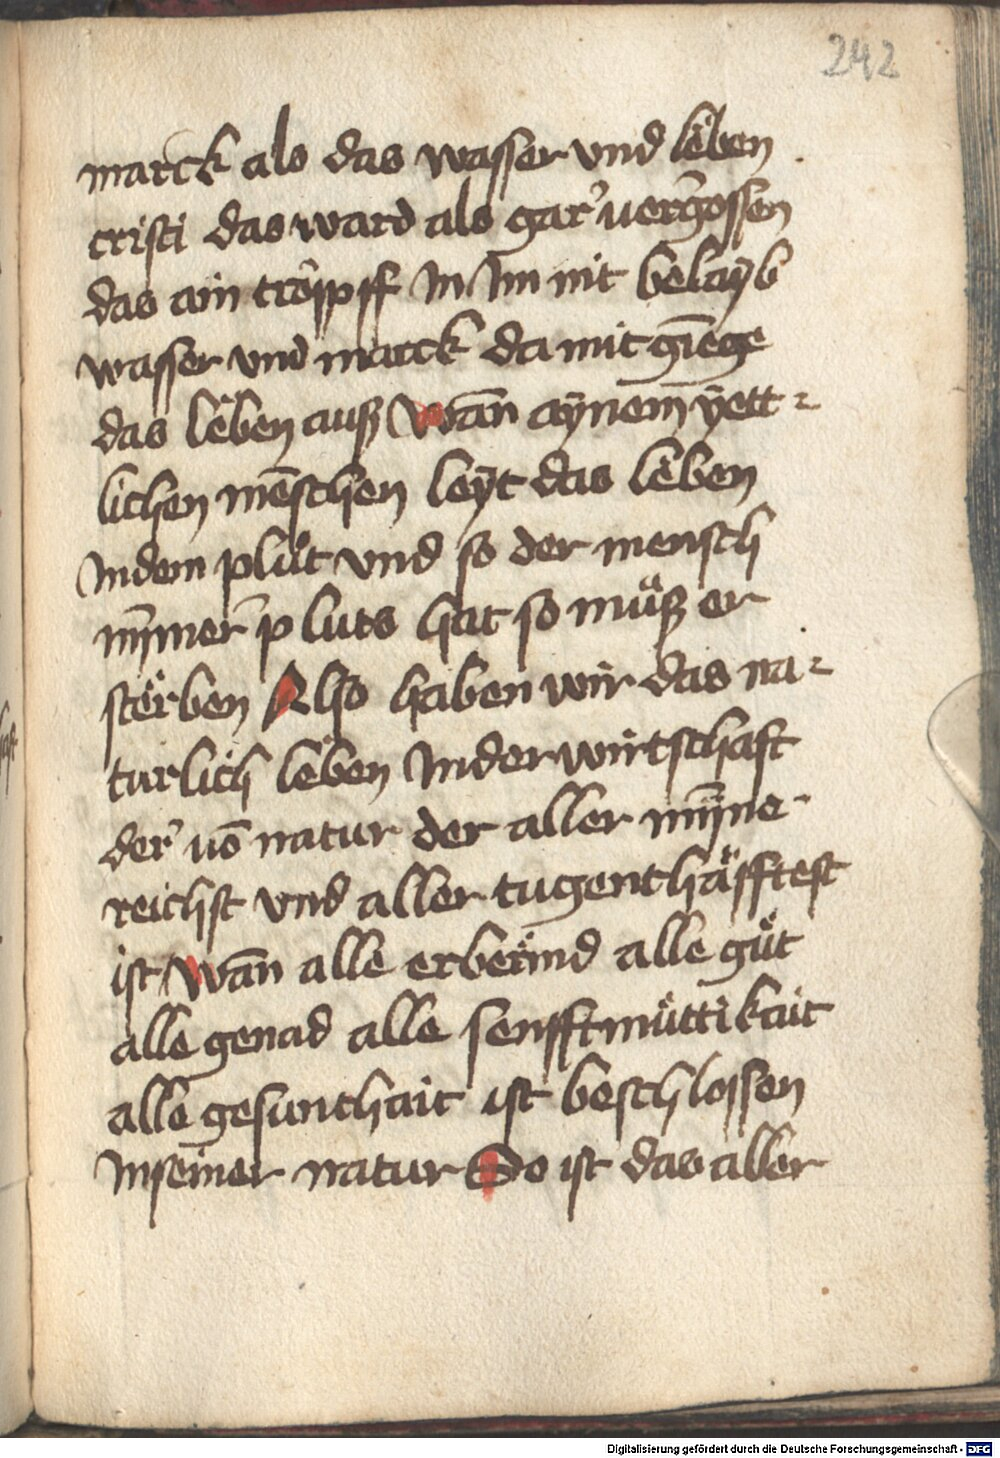 242
marck als das wasser vnd lëben
cristi das ward als gar vergossen
das ain tröpff In Im nit belayb
wasser vnd marck da mit gīēge
das lëben auß Wān aÿnem ÿett-
lichen mēschen leÿt das lëben
Indem plůt vnd so der mensch
nÿmer pluts hat so můß er
stërben Also haben wir das na-
turlich lëben Inder wirtschaft
der vō natur der aller mÿne-
reichst vnd aller tugenthäfftest
ist Wān alle erbermd alle gůt
alle genad alle senfftmůttikait
alle gesunthait ist beschlossen
Inseiner natur So ist das aller
Digitalisierung gefördert durch die Deutsche Forschungsgemeinschaft - DFG